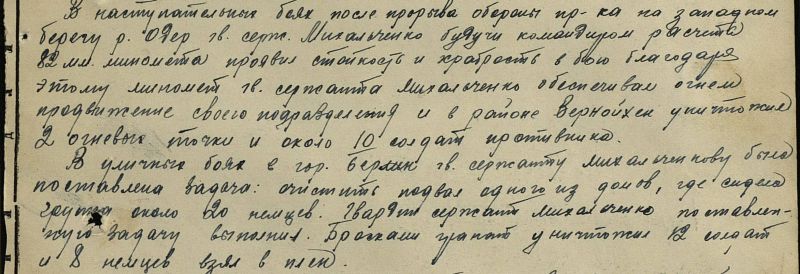 В наступательных боях после прорыва обороны пр-ка на западном
берегу р. Одер гв. серж. Михальченко будучи командиром расчета
82 мм. миномета проявил стойкость и храбрость в бою благодаря
этому миномет гв. сержанта Михальченко обеспечивал огнем
продвижение своего подразделения и в районе Вернойхен уничтожил
2 огневых точки и около 10 солдат противника.
В уличных боях в гор. Берлин гв. сержанту Михальченкову была
поставлена задача: очистить подвал одного из домов, где сидела
группа около 20 немцев. Гвардии сержант Михальченко поставлен-
ную задачу выполнил. Бросками гранат уничтожил 12 солдат
и 8 немцев взял в плен.